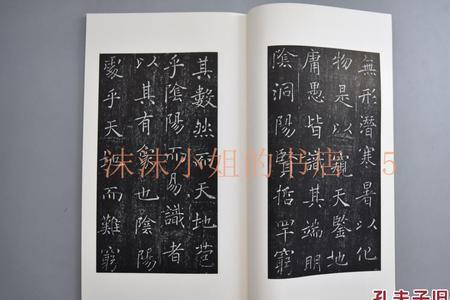 無形潛寒暑以化
物是以窺天鑒地
庸愚皆識其端明
陰洞陽賢哲罕窮
其數然而天地苞
乎陰陽而易識者
以其有象也陰陽
處乎天地而難窮
沫沫小姐的书 5
孔夫子旧